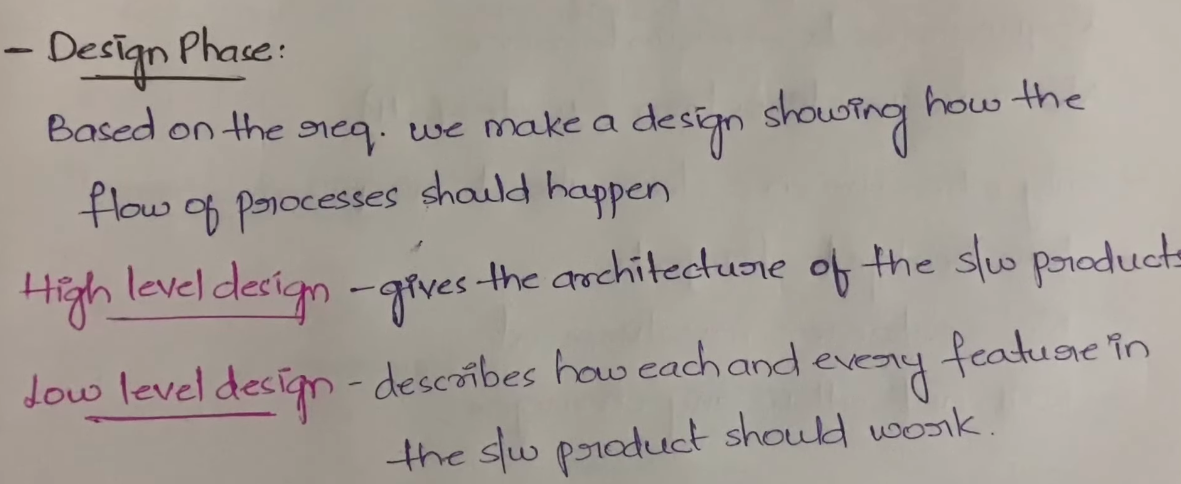 - Design Phase:
Based on the req. we make a design showing how the
flow of processes should happen
High level design - gives the architecture of the s/w products
Low level design - describes how each and every feature in
the s/w product should work.